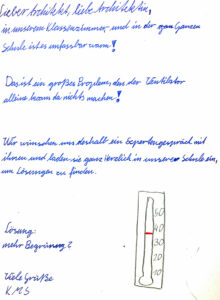 Lieber Architekt, liebe Architektin,
in unserem Klassenzimmer und in der ganzen
Schule ist es unfassbar warm!
Das ist ein großes Problem, den der Ventilator
alleine kann da nichts machen!
Wir wünschen uns deshalb ein Expertengespräch mit
ihnen und laden sie ganz herzlich in unsere Schule ein,
um Lösungen zu finden.
Lösung:
mehr Begrünung?
Viele Grüße
KMS
50
40
30
20
10